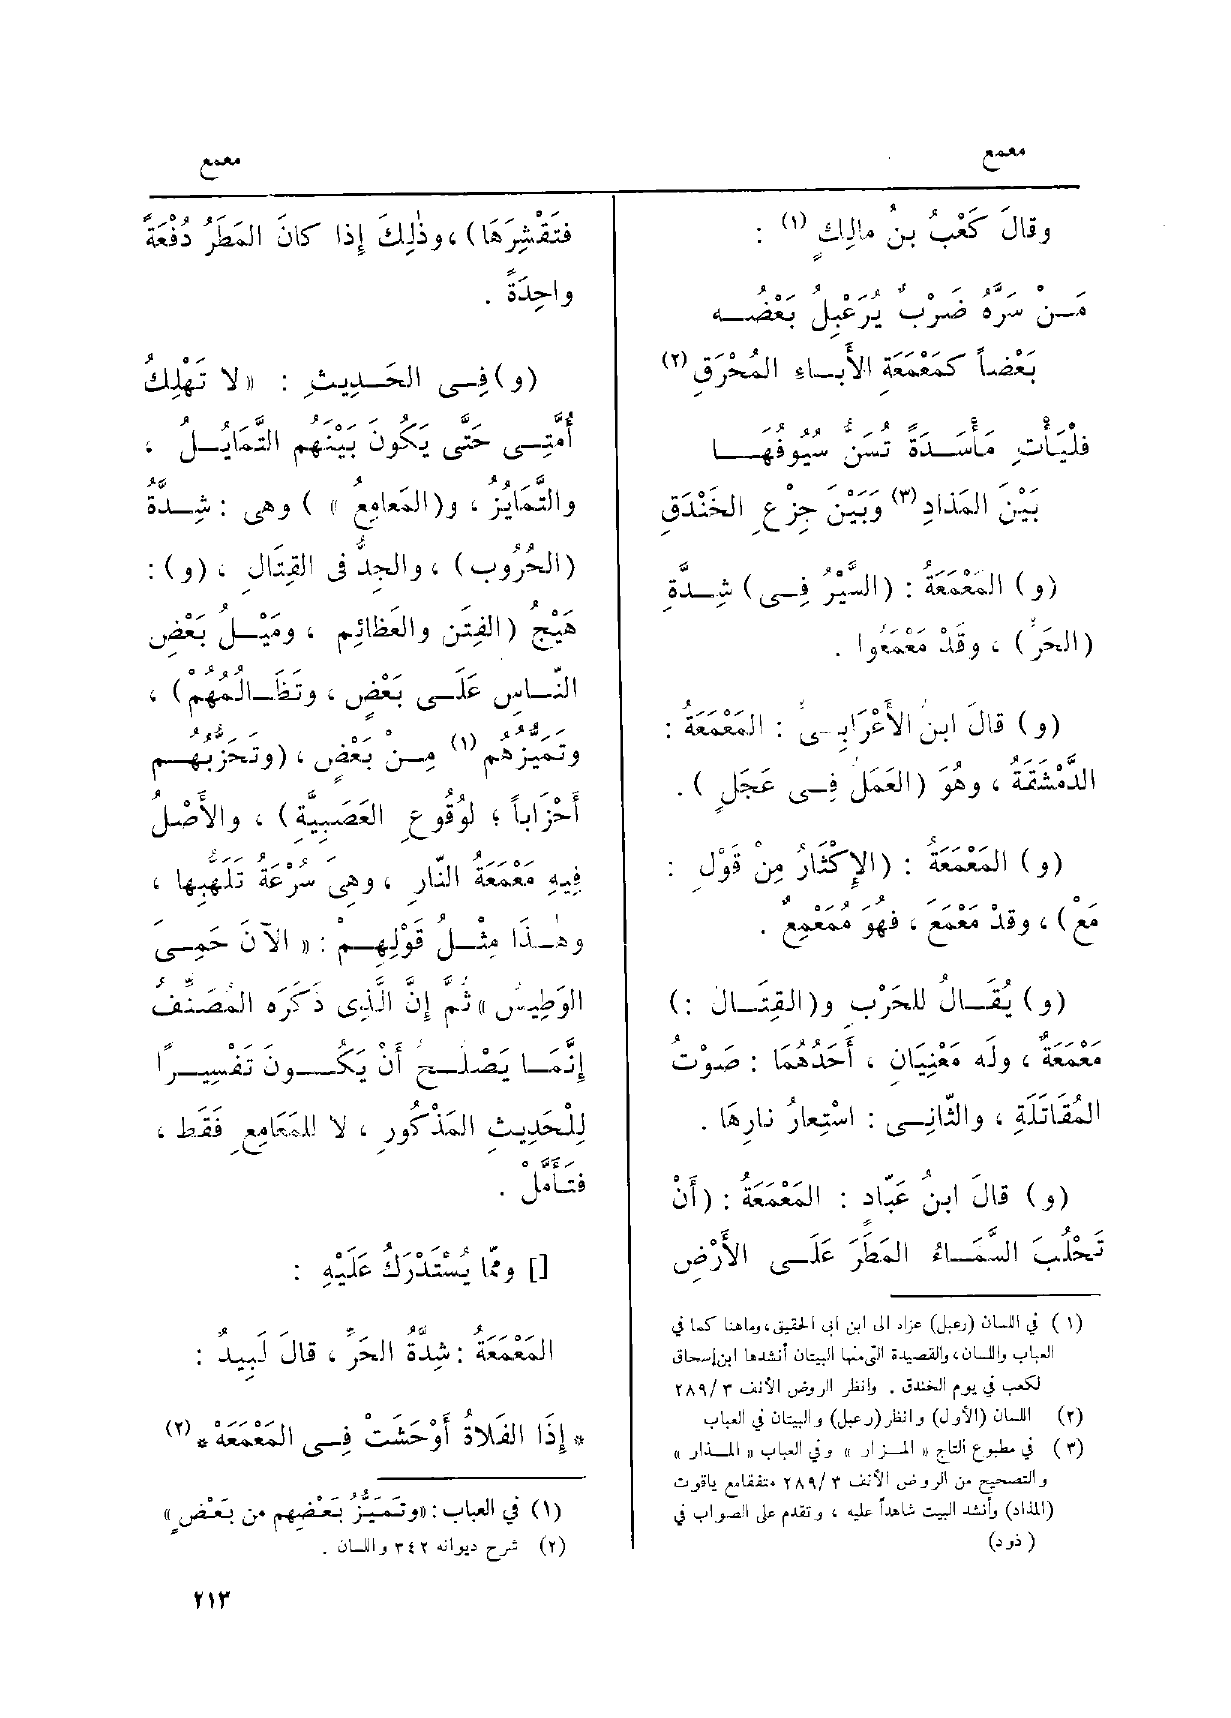 معمع
معمع
وقالَ كَعْبُ بنُ مالِكٍ (١) :
مَـنْ سَرَّه ضَرْبٌ يُرَعْبِلُ بَعْضُـــه
بَعْضاً كمَعْمَعَةِ الأَبـاءِ المُحْرَقِ (٢)
فلْيَأْتِ مَأْسَـدَةً تُسَنُّ سُيُوفُهَـــا
بَيْنَ المَذادِ (٣) وَبَيْنَ جِزْعِ الخَنْدَقِ
(و) المَعْمَعَةُ : (السَّيْرُ فِـى) شِـدَّةِ
(الحَرِّ) ، وقَدْ مَعْمَعُوا .
(و) قالَ ابنُ الأَعْرَابِـىِّ : المَعْمَعَةُ :
الدَّمْشَقَةُ ، وهُوَ (العَمَلُ فِـى عَجَلٍ ) .
(و) المَعْمَعَةُ : (الإِكْثَارُ مِنْ قَوْلِ :
مَعْ) ، وقدْ مَعْمَعَ ، فهُوَ مُمَعْمِعٌ .
(و) يُقَـالُ للحَرْبِ و(القِتَـالِ :)
مَعْمَعَةٌ ، ولَه مَعْنِيَانِ ، أَحَدُهُمَا : صَوْتُ
المُقَاتَلَةِ ، والثّانِـى : اسْتِعارُ نارِهَا .
(و) قالَ ابنُ عَبّادٍ : المَعْمَعَةُ : (أَنْ
تَحْلُبَ السَّمَـاءُ المَطَرَ عَلَـى الأَرْضِ
(١) في اللسان (رعبل) عزاه الى ابن أبى الحقيق ، وماهنا كما في
العباب واللسان ، والقصيدة التى منها البيتان أنشدها ابن إسحاق
لكعب في يوم الخندق . وانظر الروض الأنف ٣ / ٢٨٩
(٢) اللسان (الأول) وانظر (رعبل) والبيتان في العباب
(٣) في مطبوع التاج « المـزار » وفي العباب « المـذار »
والتصحيح من الروض الأنف ٣ / ٢٨٩ متفقا مع ياقوت
(المذاد) وأنشد البيت شاهداً عليه ، وتقدم على الصواب في
( ذود)
فتَقْشِرَهَا) ، وذٰلِكَ إذا كانَ المَطَرُ دُفْعَةً
واحِدَةً .
(و) فِـى الحَـدِيثِ : « لا تَهْلِكُ
أُمَّتِـى حَتَّى يَكُونَ بَيْنَهُم التَّمَايُـلُ ،
والتَّمَايُزُ ، و(المَعامِعُ » ) وهى : شِـدَّةُ
(الحُرُوبِ) ، والجِدُّ فى القِتَالِ ، (و) :
هَيْجُ (الفِتَنِ والعَظائِمِ ، ومَيْـلُ بَعْضِ
النّـاسِ عَلَـى بَعْضٍ ، وتَظَـالُمُهُم) ،
وتَمَيُّزُهُم (١) مِـنْ بَعْضٍ ، (وتَحَزُّبُهُـم
أَحْزَاباً ؛ لوُقُوعِ العَصَبِيَّةِ) ، والأَصْلُ
فِيهِ مَعْمَعَةُ النّارِ ، وهِىَ سُرْعَةُ تَلَهُّبِها ،
وهٰـذَا مِثْـلُ قَوْلِهِـمْ : « الآنَ حَمِـىَ
الوَطِيسُ » ثُمَّ إِنَّ الَّذِى ذَكَرَه المُصَنِّفُ
إِنَّمَـا يَصْلُـحُ أَنْ يَكُـونَ تَفْسِيـرًا
لِلْحَدِيثِ المَذْكُورِ ، لا للمَعَامِعِ فَقَط ،
فتَـأَمَّلْ .
[] وممّا يُسْتَدْرَكُ عَلَيْهِ :
المَعْمَعَةُ : شِدَّةُ الحَرِّ ، قالَ لَبِيدٌ :
* إِذَا الفَلاةُ أَوْحَشَتْ فِـى المَعْمَعَهْ * (٢)
(١) في العباب : «وتَمَيُّزُ بَعْضِهِم من بَعْضٍ »
(٢) شرح ديوانه ٣٤٢ واللسان .
٢١٣